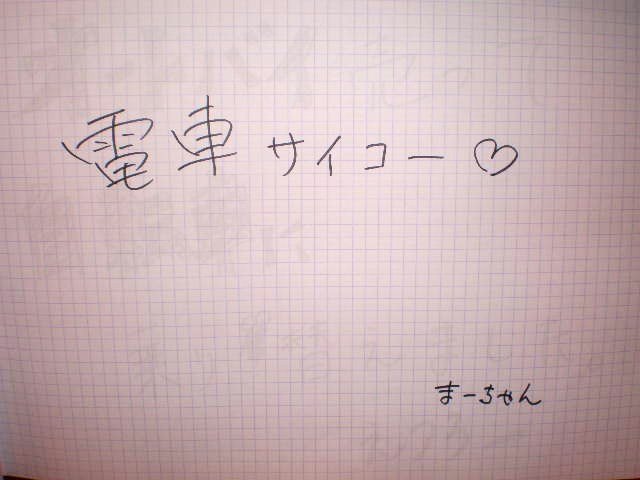 電車サイコー♡
まーちゃん